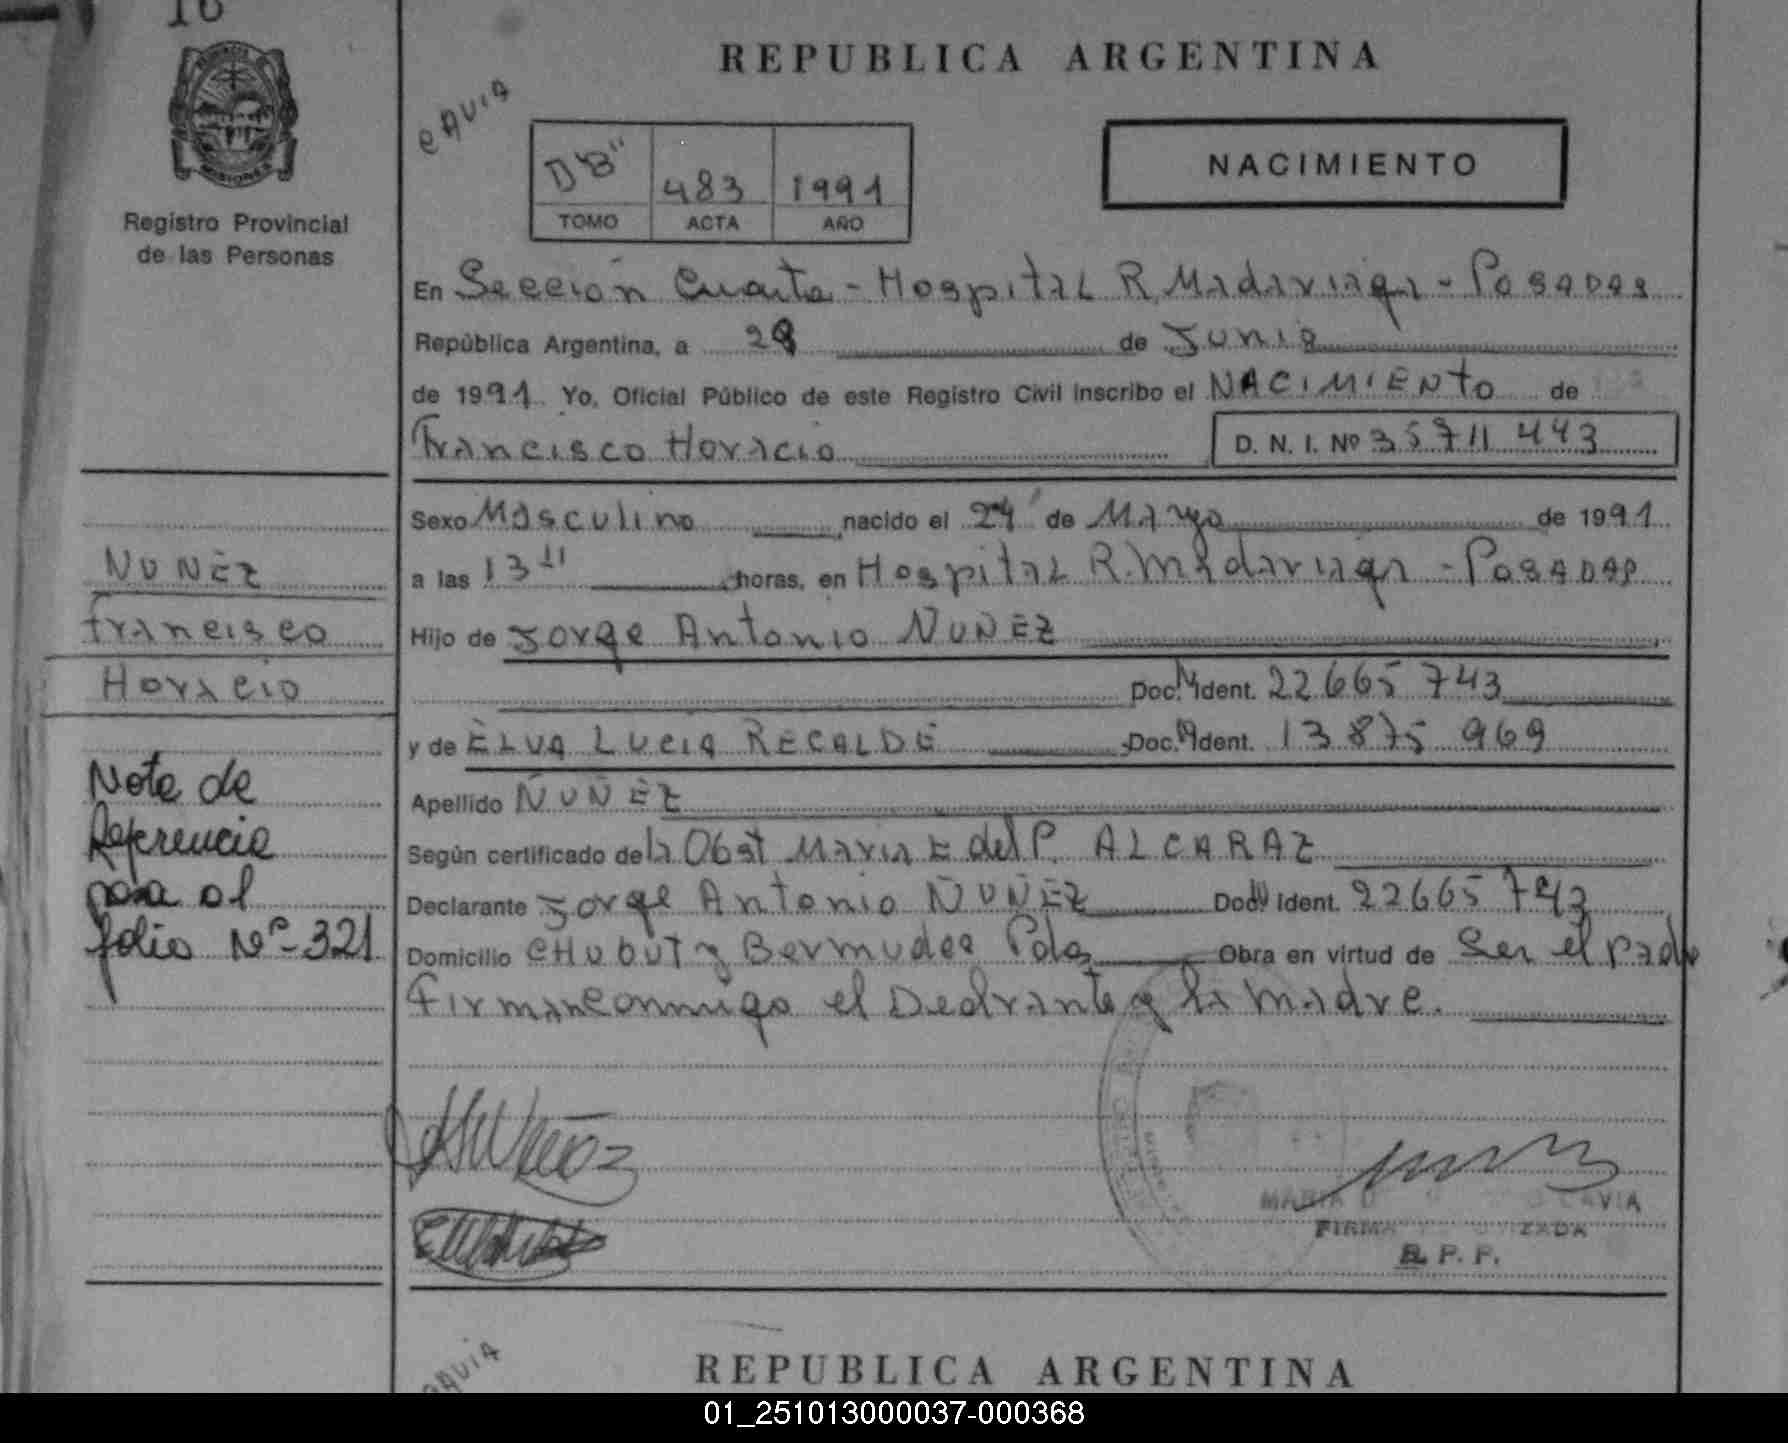 16
PROVINCIA
MISIONES
Registro Provincial
de las Personas
CAVIA
REPUBLICA ARGENTINA
D"B" 483 1991
TOMO ACTA AÑO
NACIMIENTO
En Sección Cuarta - Hospital R. Madariaga - POSADAS
República Argentina, a 28 de Junio
de 1991. Yo, Oficial Público de este Registro Civil inscribo el NACIMIENTO de
Francisco Horacio D. N. I. Nº 35711 443
Sexo Masculino nacido el 24 de Mayo de 1991
a las 13 horas, en Hospital R. Madariaga - POSADAS
Hijo de Jorge Antonio NUÑEZ
Doc. N Ident. 22665 743
y de ELVA LUCIA RECALDE Doc. N Ident. 13 875 969
Apellido NUÑEZ
Según certificado de la Obst Maria E del P. ALCARAZ
Declarante Jorge Antonio NUÑEZ Doc. N Ident. 22665 743
Domicilio CHUBUT y Bermudez Pdas Obra en virtud de Ser el padre
Firman conmigo el Declarante y la madre.
NUÑEZ
Francisco
Horacio
Nota de
Referencia
pasa al
folio Nº-321
MARIA CAVIA
FIRMA
R. P. P.
CAVIA
REPUBLICA ARGENTINA
01_251013000037-000368